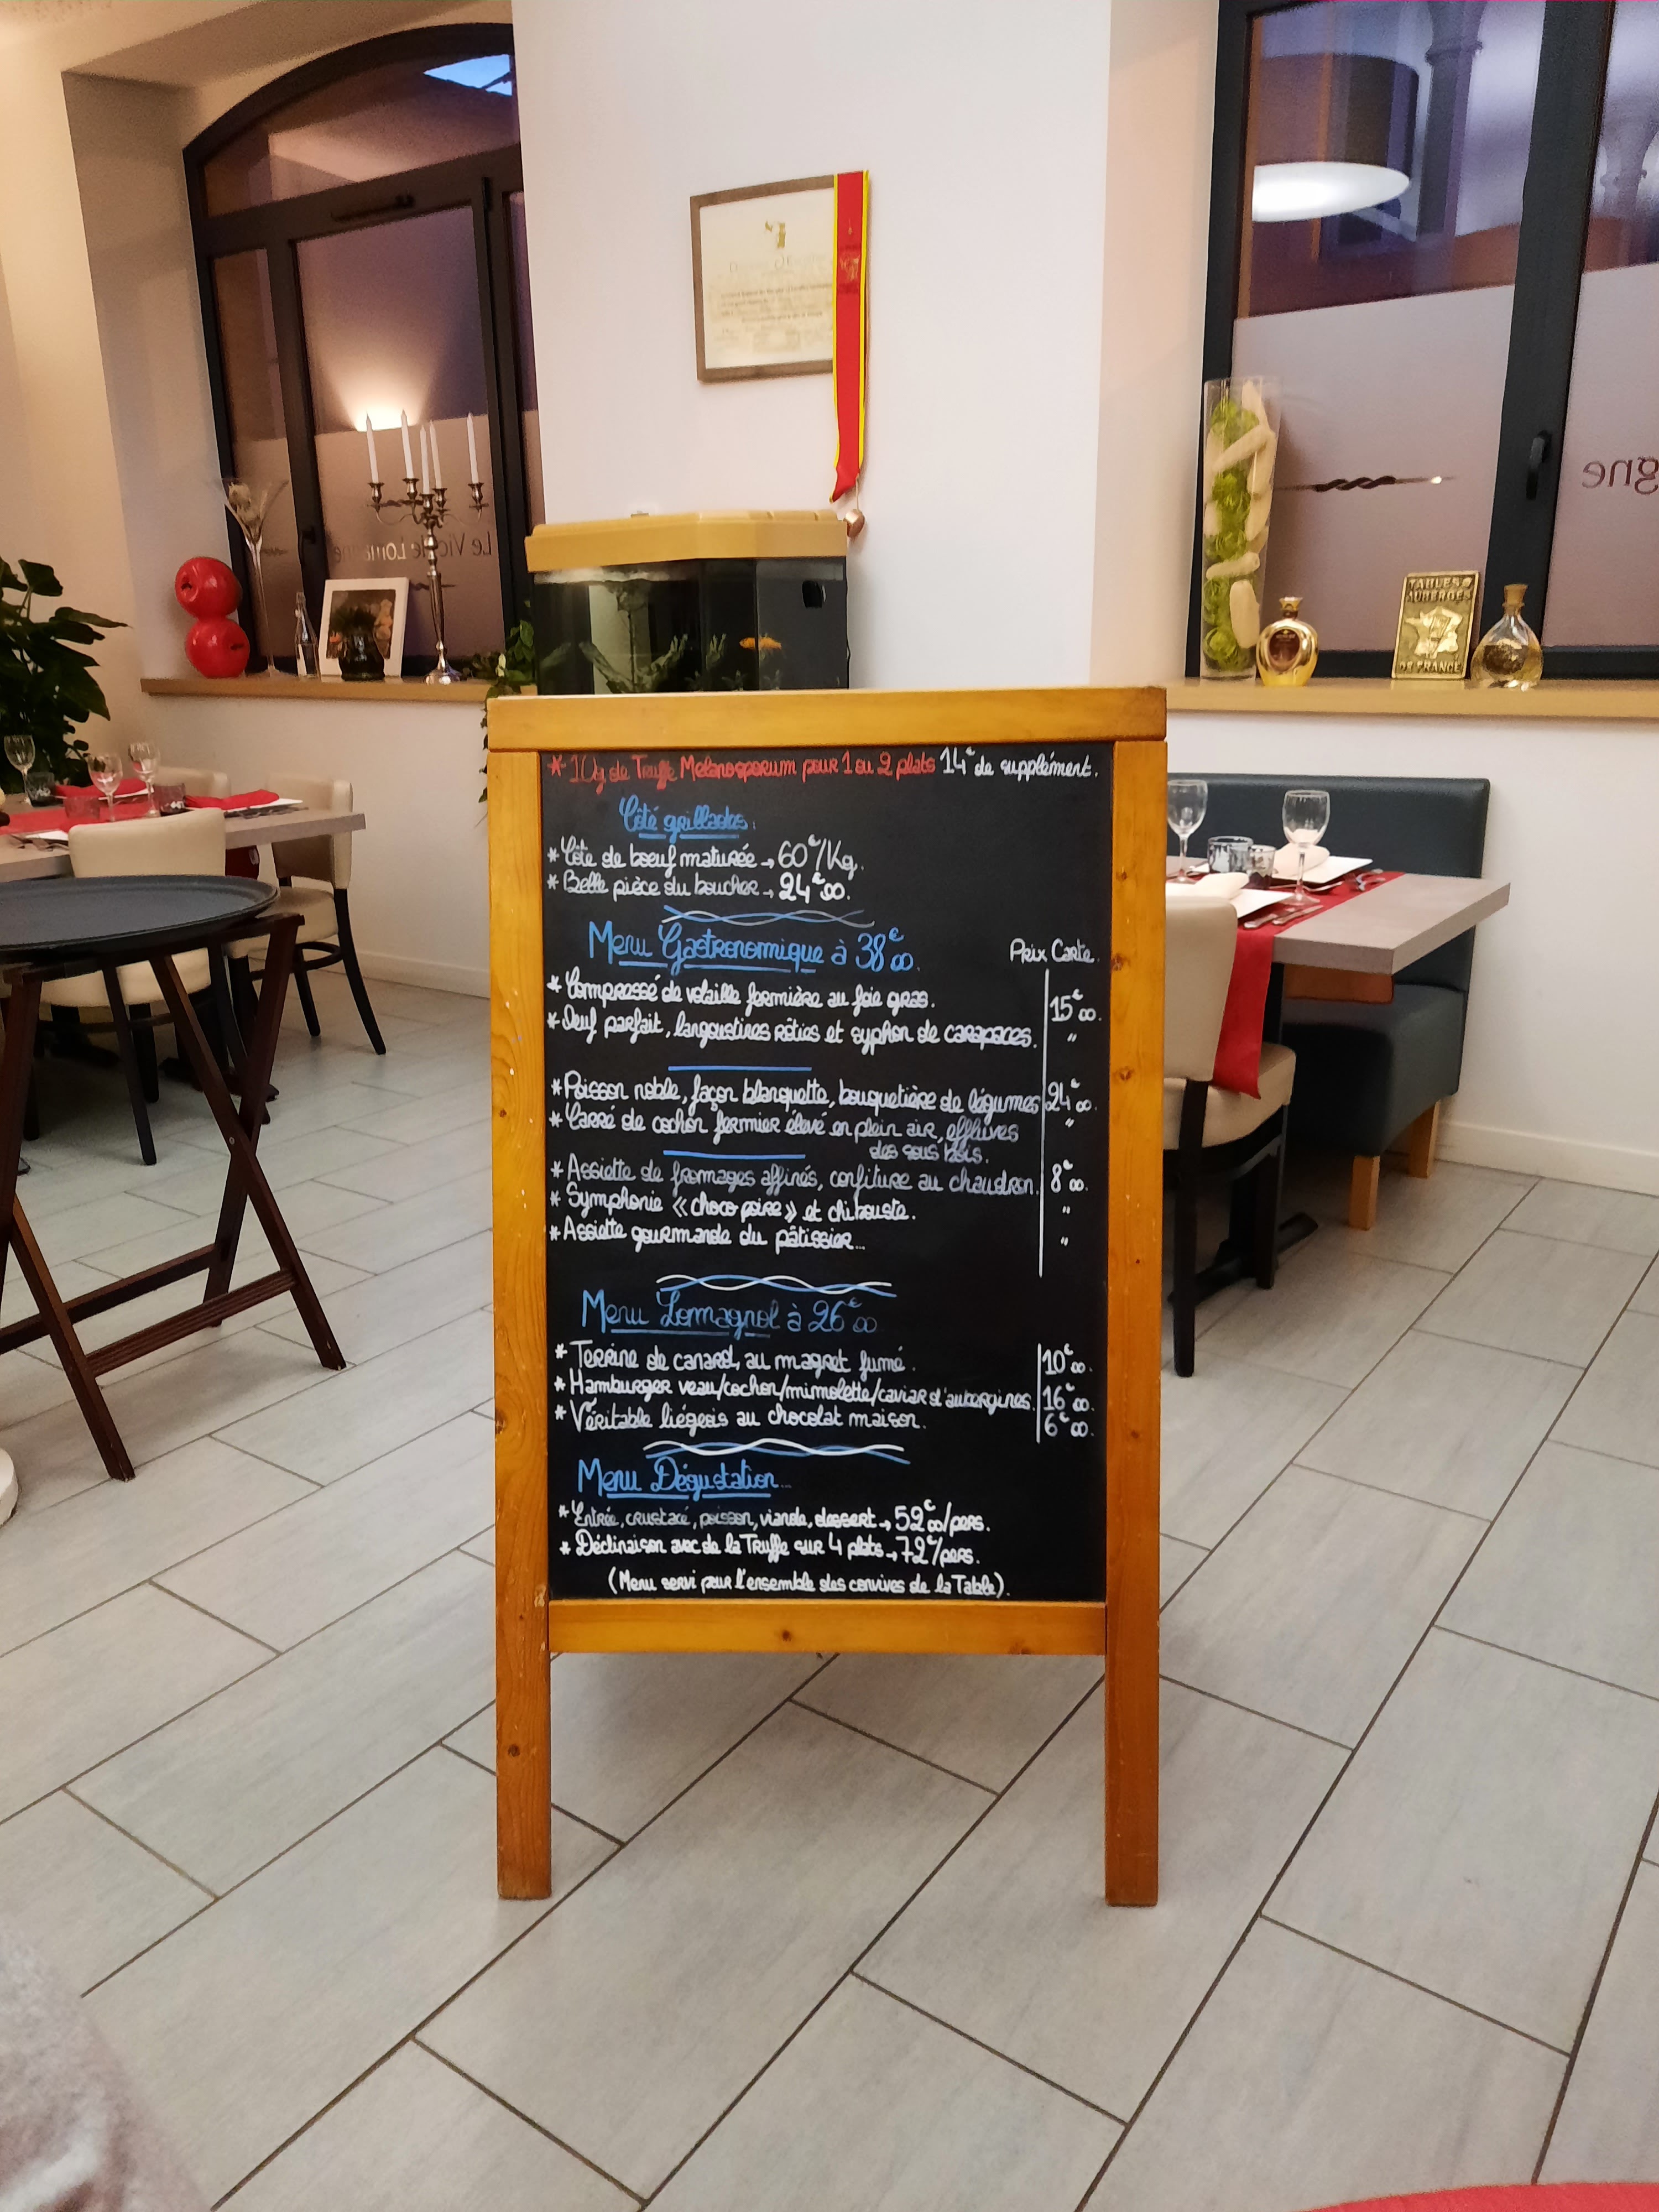 Le Vic de Lomagne
gne
TABLES &
AUBERGES
DE FRANCE
* 10g de Truffe Melanosporum pour 1 ou 2 plats 14€ de supplément.
Côté grillades:
* Côte de boeuf maturée → 60€/Kg.
* Belle pièce du boucher → 24€00.
Menu Gastronomique à 38€00.
Prix Carte.
* Compressé de volaille fermière au foie gras. 15€00.
* Oeuf parfait, langoustines rôties et syphon de carapaces. "
* Poisson noble, façon blanquette, bouquetière de légumes 24€00.
* Carré de cochon fermier élevé en plein air, effluves "
des sous bois.
* Assiette de fromages affinés, confiture au chaudron. 8€00.
* Symphonie « choco poire » et chibouste. "
* Assiette gourmande du pâtissier... "
Menu Lomagnol à 26€00
* Terrine de canard, au magret fumé. 10€00.
* Hamburger veau/cochon/mimolette/caviar d'aubergines. 16€00.
* Véritable liégeois au chocolat maison. 6€00.
Menu Dégustation...
* Entrée, crustacé, poisson, viande, dessert → 52€00/pers.
* Déclinaison avec de la Truffe sur 4 plats → 72€/pers.
(Menu servi pour l'ensemble des convives de la Table).